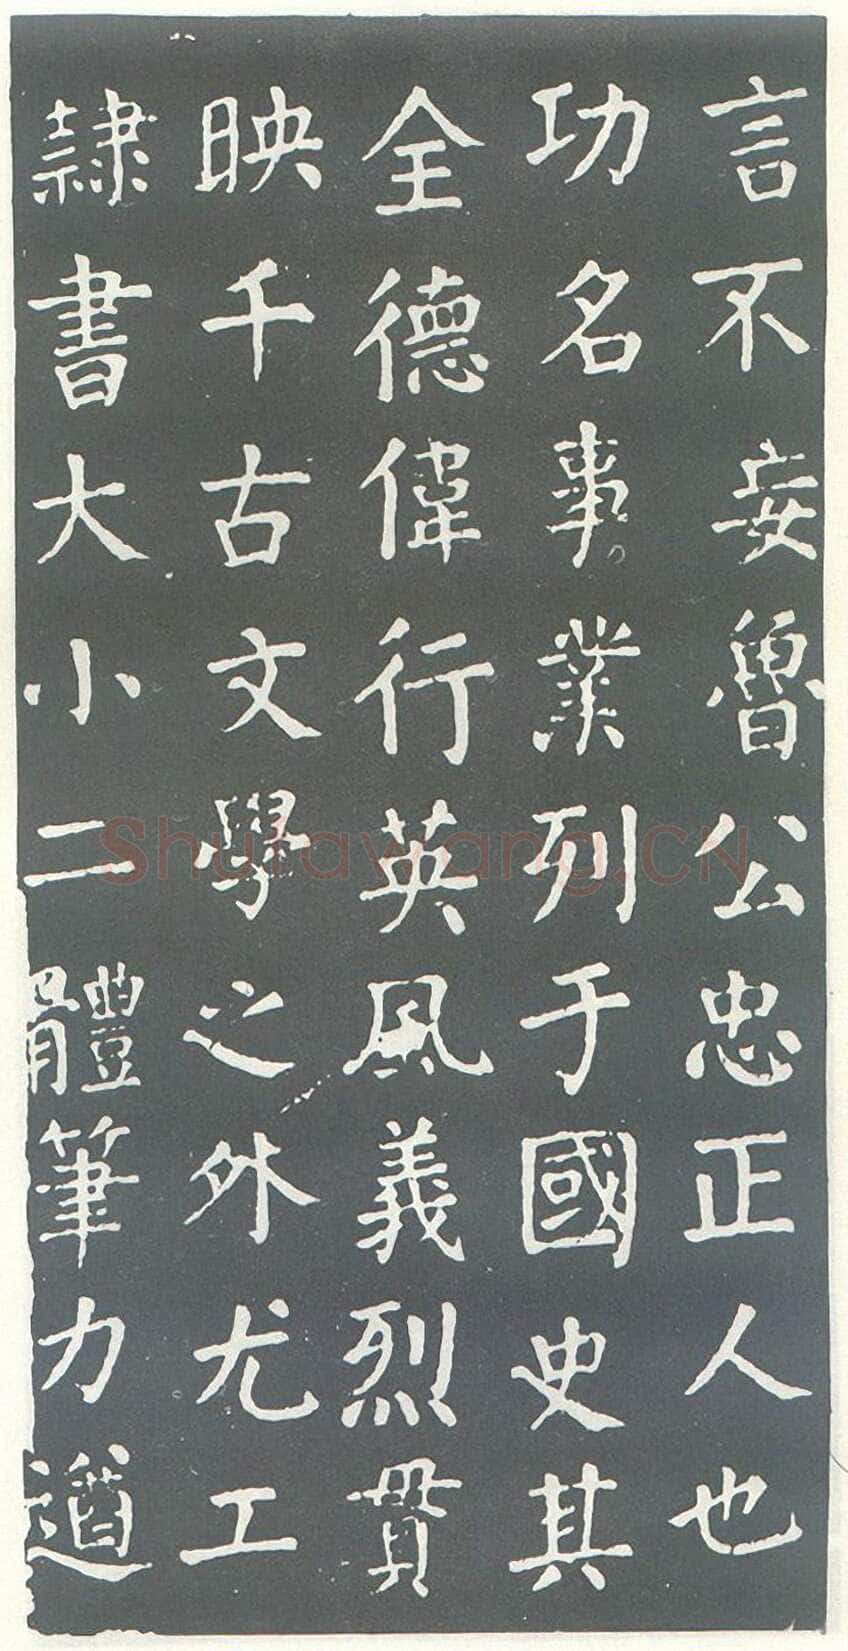 言不妄魯公忠正人也
功名事業列于國史其
全德偉行英風義烈貫
映千古文學之外尤工
隷書大小二體筆力遒
Shufawang.CN